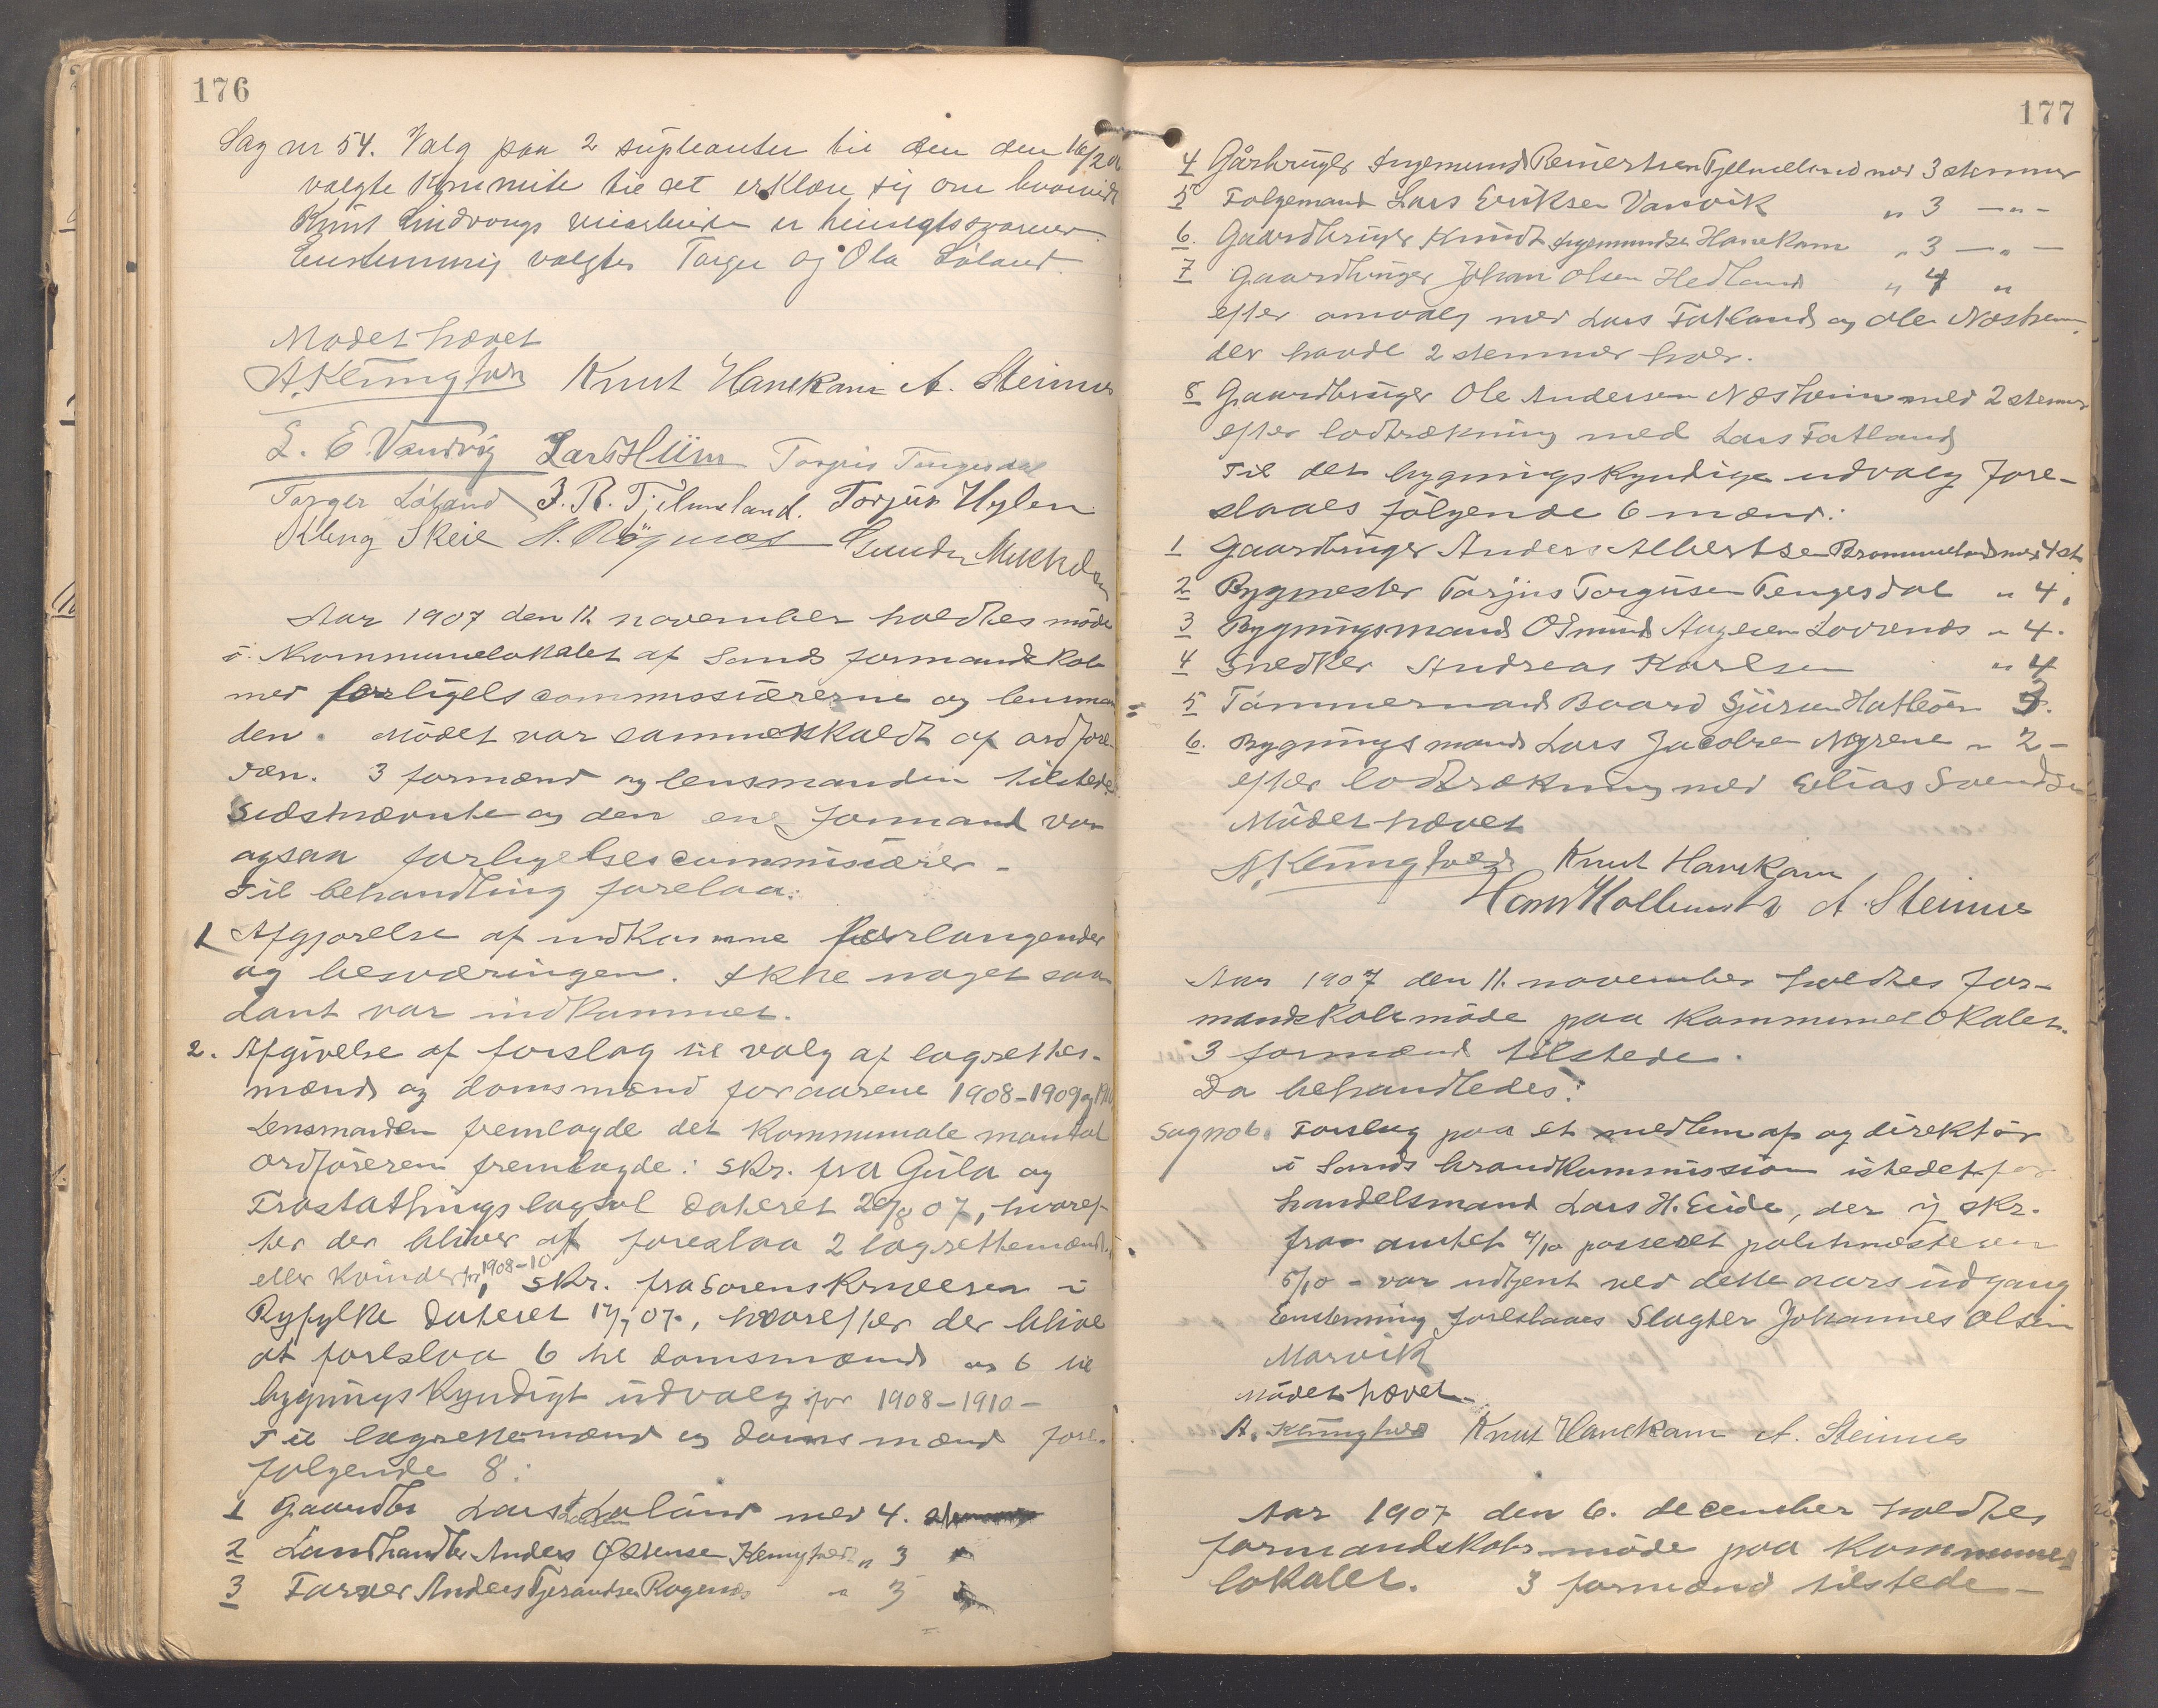 176
Sag nr 54. Valg paa 2 supleanter til den den 16/2 06
valgte Kommite til at erklære sig om hvorvidt
Knut Lindvangs er hensigtssvarer.
Enstemmig valgtes Torger og Ola Løland.
Mødet hævet
A. Klungtvedt Knut Hanekam A. Steinnes
L. E. Vandvig Lars Hiim Torgeis Tengesdal
Torger Løland J. R. Tjelmeland. Torjus Hylen
Kleng Skeie H. Røgnæs Gunder
Aar 1907 den 11. november holdtes møde
i Kommunelokalet af Sands formandskab
med forligelscommissærerne og lensman
den. Mødet var sammenkaldt af ordføre-
ren. 3 formænd og lensmanden tilstede
Sidstnævnte og den ene formand var
ogsaa forligelsescommissærer.
Til behandling forelaa:
1 Afgjørelse af indkomne forlangender
og besværinger. Ikke noget saa
dant var indkommet.
2. Afgivelse af forslag til valg af lagrettes-
mænd og domsmænd for aarene 1908-1909 og 1910
Lensmanden fremlagde det Kommunale mantal
Ordføreren fremlagde: skr. fra Gula og
Frostathings lagsol dateret 29/8 07, hvoref-
ter der bliver at foreslaa 2 lagrettemænd
eller Kvinder for 1908-10, skr. fra Sorenskriveren i
Ryfylke dateret 17/9 07., hvorefter der blive
at foreslaa 6 til domsmænd og 6 til
bygningskyndigt udvalg for 1908-1910-
Til lagrettemænd og domsmænd fore.
følgende 8:
1 Gaardbr Lars Larsen Løland med 4. stemmer
2 Landhandler Anders Østensen Klungtvedt " 3
3 Farver Anders Tjerandsen Røgnes " 3
177
4 Gårbruger Ingemund Reinertsen Tjelmeland med 3 stemmer
5 Følgemand Lars Eriksen Vanvik " 3 —"-
6. Gaardbruger Knudt Ingemundsen Hanekam " 3 —"—
7 Gaardbruger Johan Olsen Hedland " 4 "
efter omvalg med Lars Fatland og Ole Næsheim
der havde 2 stemmer hver.
8 Gaardbruger Ole Andersen Næsheim med 2 stemmer
efter lodtrækning med Lars Fatland
Til det bygningskyndige udvalg fore-
slaaes følgende 6 mænd:
1 Gaardbruger Anders Albertsen Brommeland med 4 st.
2 Bygmester Tarjus Torgusen Tengesdal " 4.
3 Bygningsmand Osmund Aagesen Lovrends " 4.
4 Snedker Andreas Karlsen " 4
5 Tømmermand Baard Sjursen Hatleøen 3.
6. Bygningsmand Lars Jacobsen Nyrene " 2 -
efter lodtrækning med Elias Svendsen
Mødet hævet
A. Klungtvedt Knut Hanekam
Hans A. Steinnes
Aar 1907 den 11. november holdtes for-
mandskabsmøde paa Kommunelokalet.
3 formænd tilstede.
Da behandledes:
Sag no 6. Forslag paa et medlem af og direktør
i Sands brandkommission istedet for
handelsmand Lars H. Eide, der if skr.
fra amtet 4/10 passeret politimesteren
5/10 - var udtjent ved dette aars udgang
Enstemmig foreslaaes Slagter Johannes Olsen
Marvik
Mødet hævet-
A. Klungtvedt Knut Hanekam A. Steinnes
Aar 1907 den 6. december holdtes
formandskabsmøde paa Kommune
lokalet. 3 formænd tilstede —